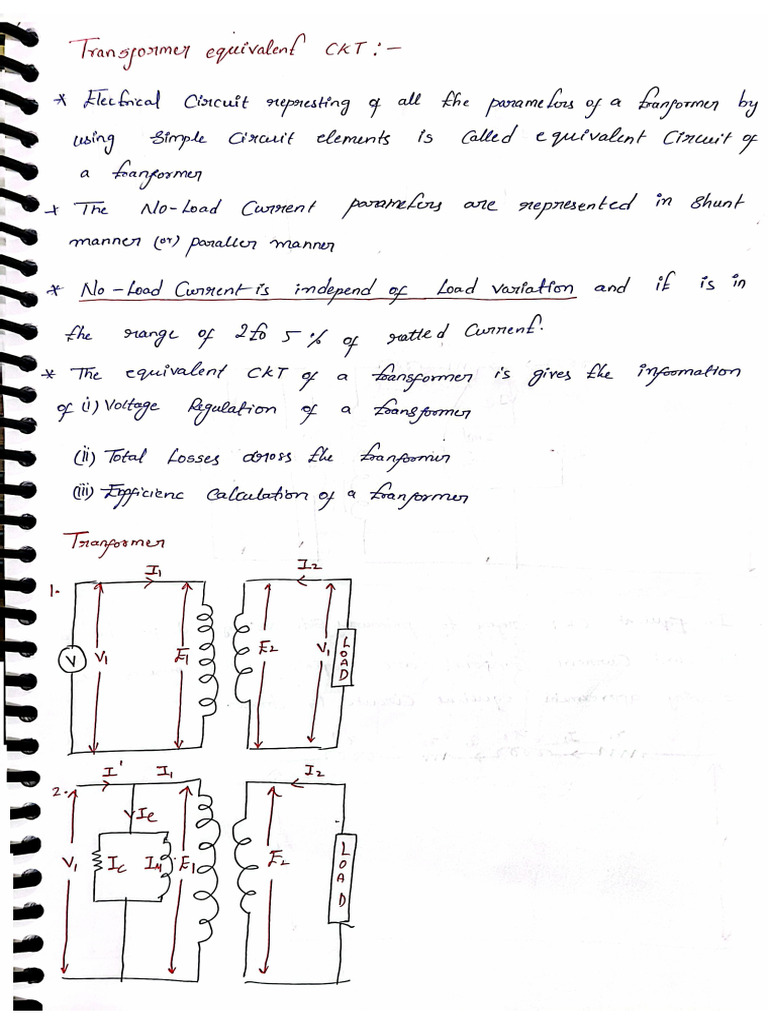 Transformer equivalent CKT :-
* Electrical Circuit represting of all the parameters of a tranformer by
using Simple Circuit elements is called equivalent Circuit of
a tranformer
* The No-Load Current parameters are represented in Shunt
manner (or) paraller manner
* No-Load Current is independ of Load variation and it is in
the range of 2 to 5 % of ratted Current.
* The equivalent CKT of a transformer is gives the information
of (i) Voltage Regulation of a transformer
(ii) Total Losses across the tranformer
(iii) Efficienc Calculation of a tranformer
Tranformer
1.
I1
I2
V
V1
E1
E2
V1
LOAD
2.
I'
I1
I2
Ie
V1
Ic
IM
E1
E2
LOAD